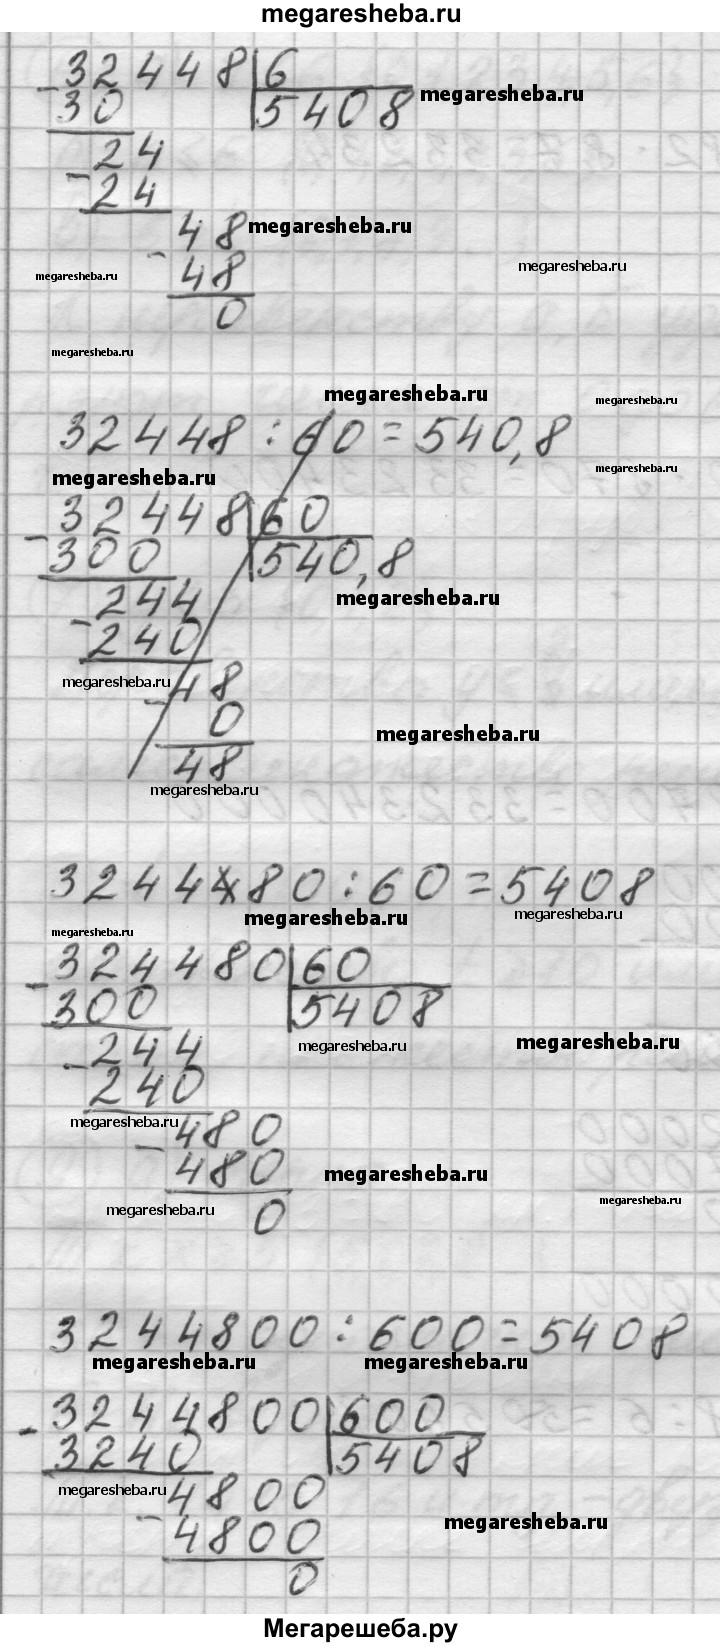 megaresheba.ru
32448 6
30 5408 megaresheba.ru
24
24
48 megaresheba.ru
megaresheba.ru
megaresheba.ru 48
0
megaresheba.ru
megaresheba.ru
megaresheba.ru
32448 : 60 = 540,8
megaresheba.ru
megaresheba.ru
32448 60
300 540,8
244 megaresheba.ru
240
megaresheba.ru 48
0 megaresheba.ru
48
megaresheba.ru
324480 : 60 = 5408
megaresheba.ru megaresheba.ru
megaresheba.ru
324480 60
300 5408
244 megaresheba.ru megaresheba.ru
240
megaresheba.ru 480
480 megaresheba.ru
megaresheba.ru 0 megaresheba.ru
3244800 : 600 = 5408
megaresheba.ru megaresheba.ru
3244800 600
3240 5408
megaresheba.ru 4800
4800 megaresheba.ru
0
Мегарешеба.ру